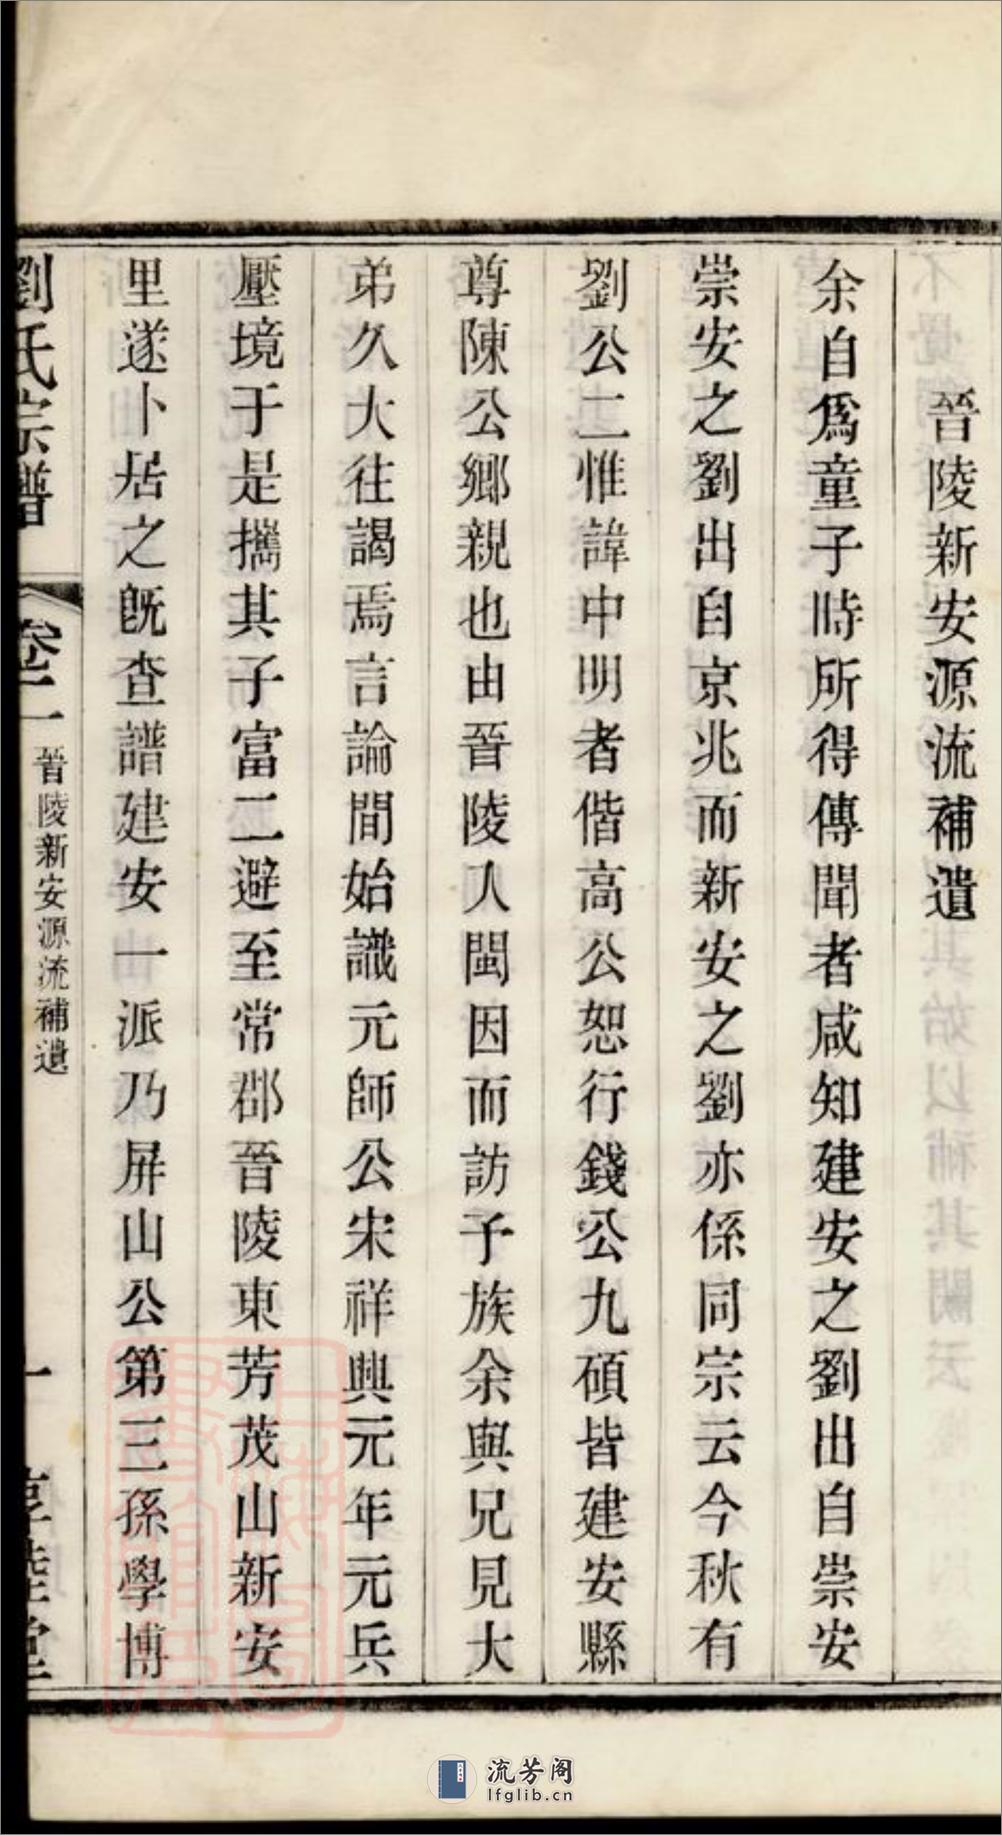 晉陵新安源流補遺
余自爲童子時所得傳聞者咸知建安之劉出自崇安
崇安之劉出自京兆而新安之劉亦係同宗云今秋有
劉公二惟諱中明者偕高公恕行錢公九碩皆建安縣
尊陳公鄉親也由晉陵人閩因而訪子族余與兄見大
弟久大往謁焉言論間始識元師公宋祥興元年元兵
壓境于是攜其子富二避至常郡晉陵東芳茂山新安
里遂卜居之旣查譜建安一派乃屏山公第三孫學博
劉氏宗譜
卷二
晉陵新安源流補遺
一
流芳阁
lfglib.cn